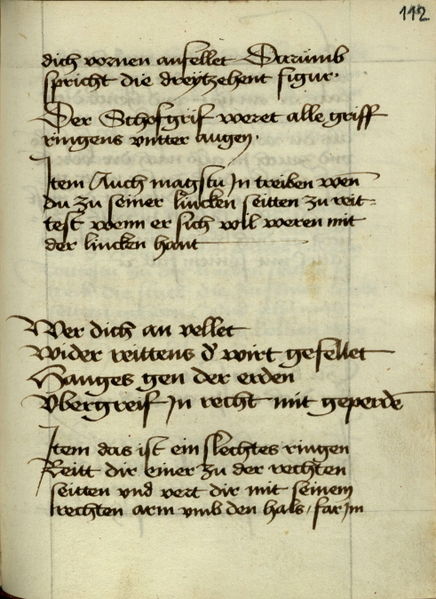 112
dich vornen anfellet Darümb
spricht die dreytzehent figur·
Der Schofgrif weret alle griff
ringens vntter augen·
Item Auch magstu In treiben wen
du zu seiner lincken seitten zu reit=
test wenn er sich wil weren mit
der lincken hant
Wer dich an vellet
Wider rittens d' wirt gefellet
Hanges gen der erden
Vbergreif In recht mit geperde
Item das ist ein slechtes ringen
Reitt dir einer zu der rechten
seitten vnd vert dir mit seinem
rechten arm vmb den hals / far Im